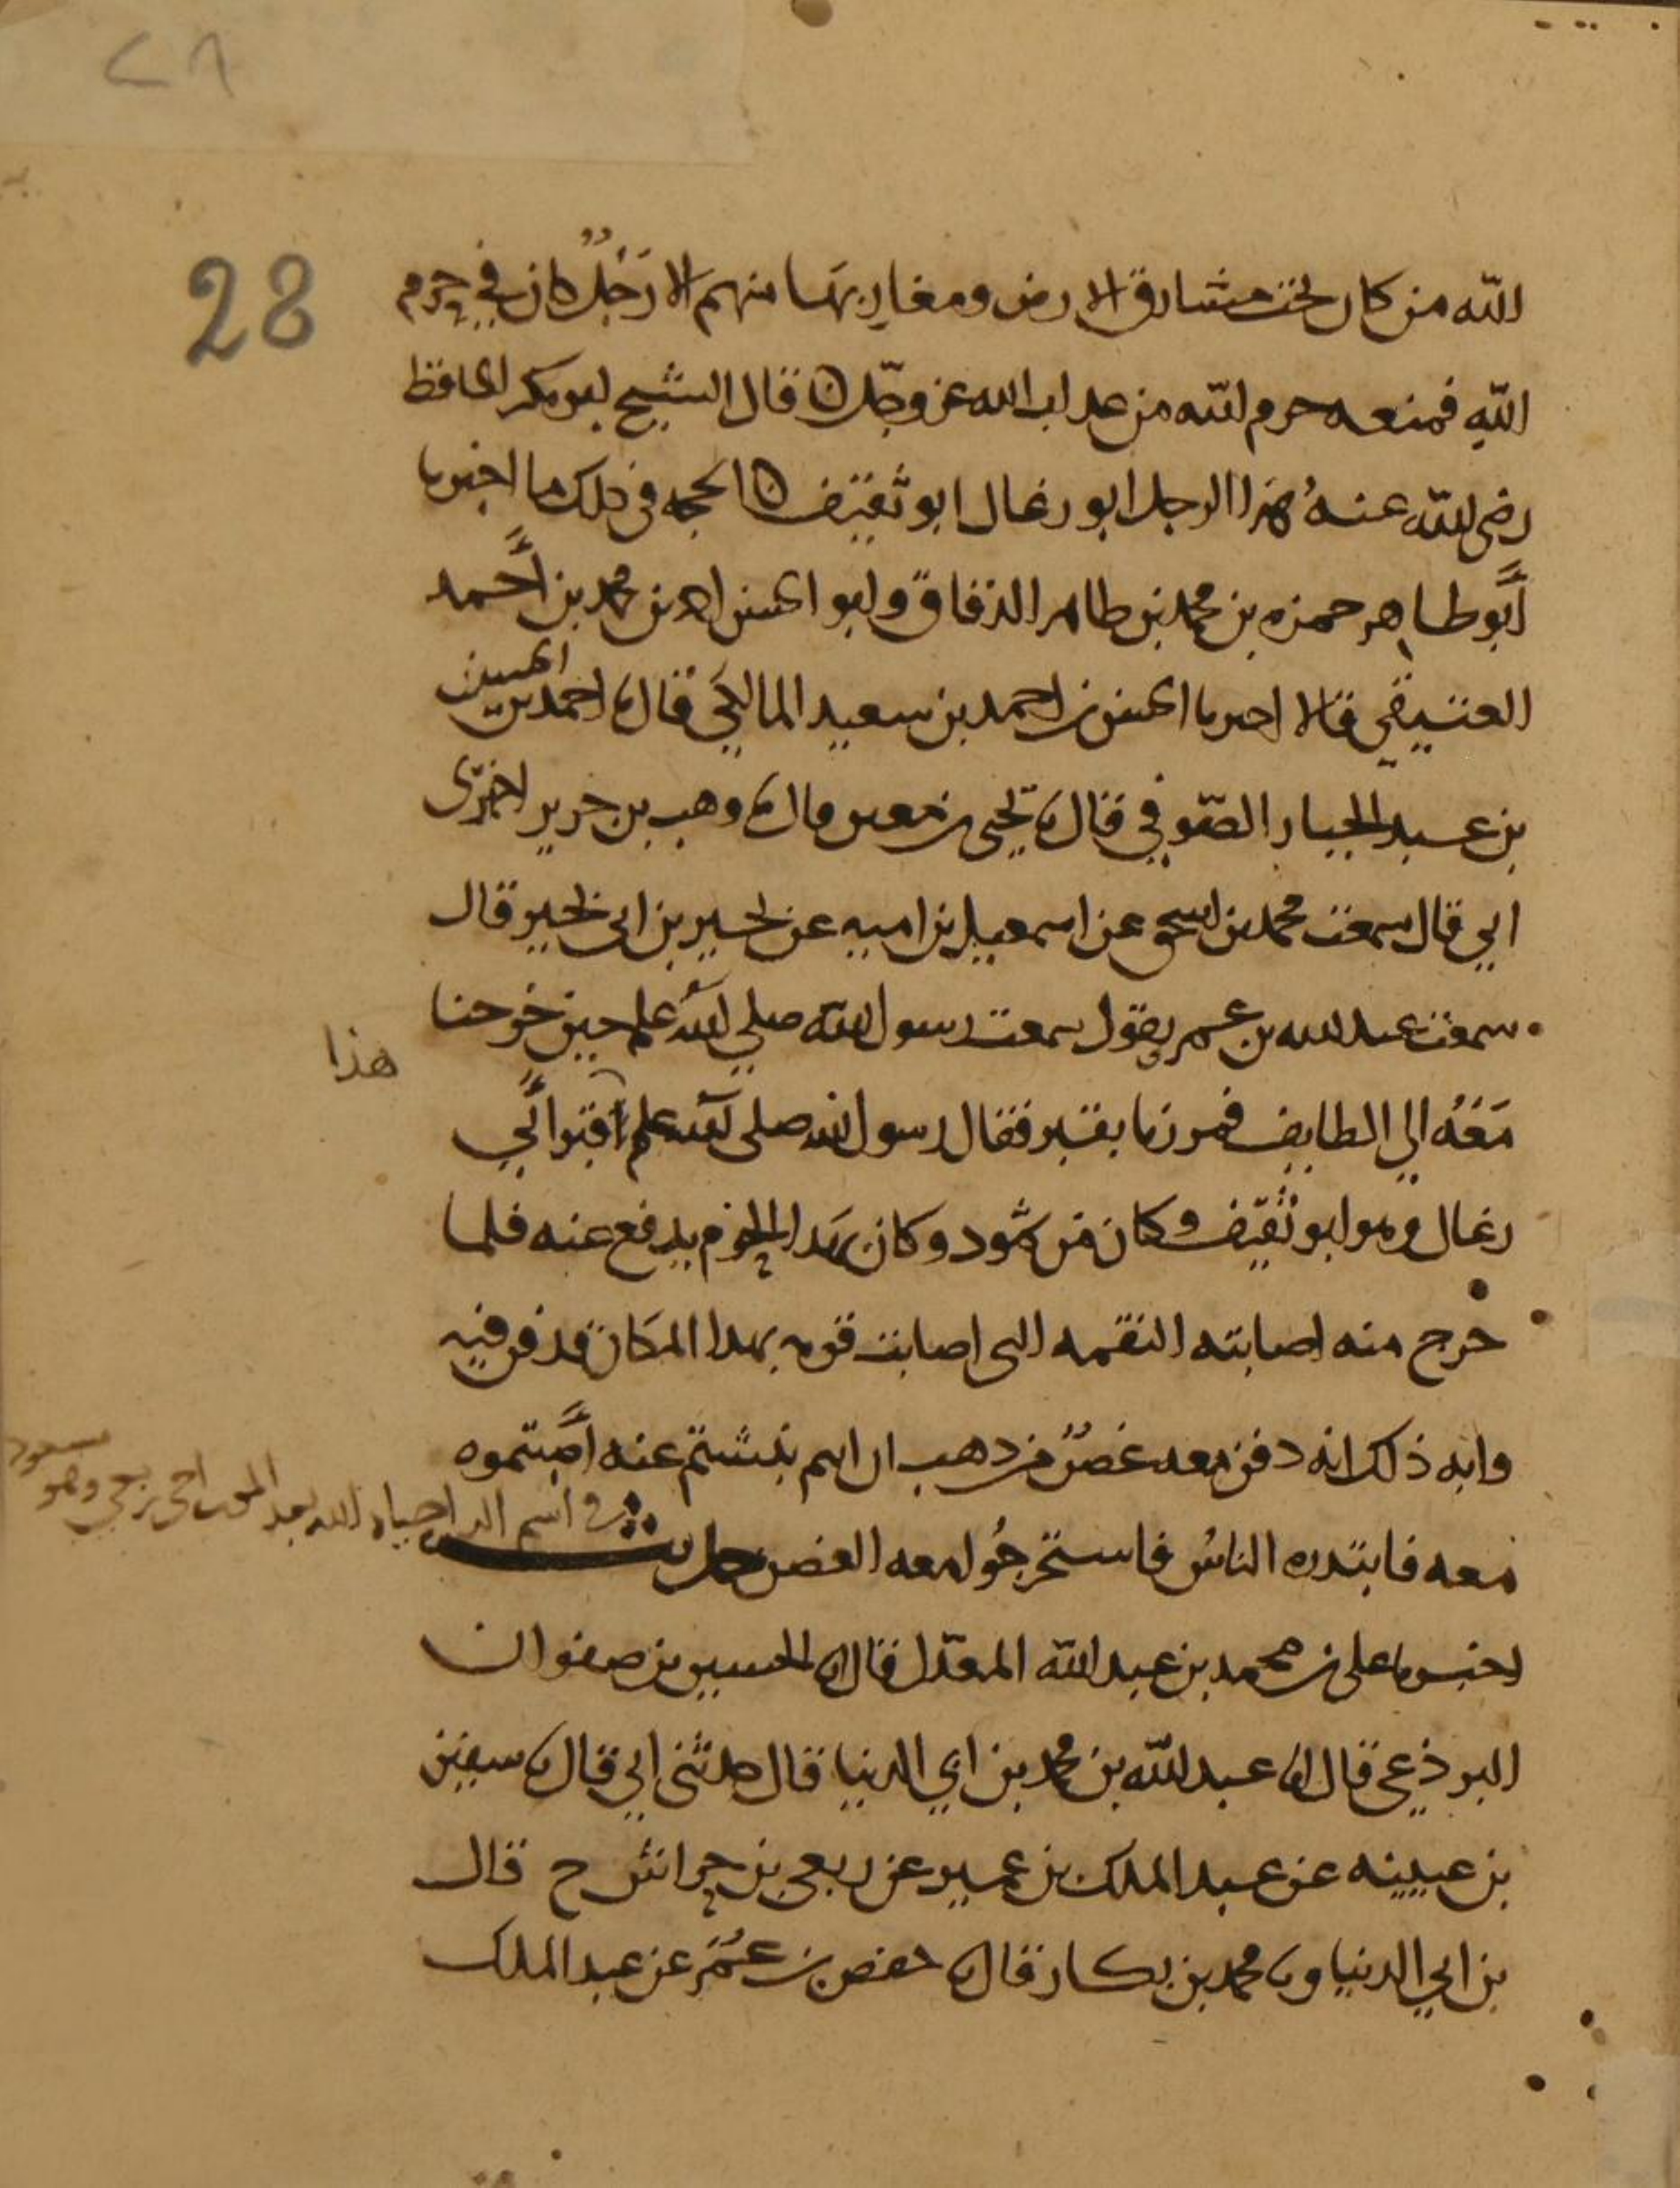 ٢٨
28
الله من كان تحت مشارق الارض ومغاربها منهم الا رجلٌ كان في حرم
اللهِ فمنعه حرم الله من عداب الله عز وجل ٥ قال الشيخ ابو بكر الحافظ
رضى الله عنهُ هذا الرجل ابو رغال ابو ثقيف ٥ الحجه فى ذلك ما اخبرنا
أَبو طاهر حمزه بن محمد بن طاهر الدقاق وابو الحسن احمد بن محمد بن أَحمد
العتيقي قالا اخبرنا الحسن بن احمد بن سعيد المالكي قال نا احمد بن الحسين
بن عبد الجبار الصّوفي قال نا يحيى بن معين قال نا وهب بن جرير اخبرنى
ابي قال سمعت محمد بن اسحق عن اسمعيل بن اميه عن بحير بن ابى بحير قال
سمعت عبد الله بن عمر يقول سمعت رسول الله صلى الله علم حين خرجنا
مَعَهُ الي الطايف فمررنا بقبر فقال رسول الله صلى الله علم قبر أَبي
هذا
رغال وهو ابو ثقيف وكان من ثمود وكان بهدا الحرم يدفع عنه فلما
خرج منه اصابته النقمه التى اصابت قومه بهدا المكان فدفن فيه
وايه ذلك انه دفن معه غصنٌ من دهب ان انتم نبشتم عنه أَصبتموه
معه فابتدره الناسُ فاستخرجُوا معه الغصن حديث
في اسم الد احياه الله بعد الموت اخى ربعي وهو مسعود
اخبرنا على بن محمد بن عبد الله المعدّل قال انا الحسين بن صفوان
البرذعي قال انا عبد الله بن محمد بن ابي الدنيا قال حدثنى ابي قال نا سفين
بن عيينه عن عبد الملك بن عمير عن ربعي بن حراش ح قال
بن ابي الدنيا ونا محمد بن بكار قال نا حفص بن عُمَر عن عبد الملك